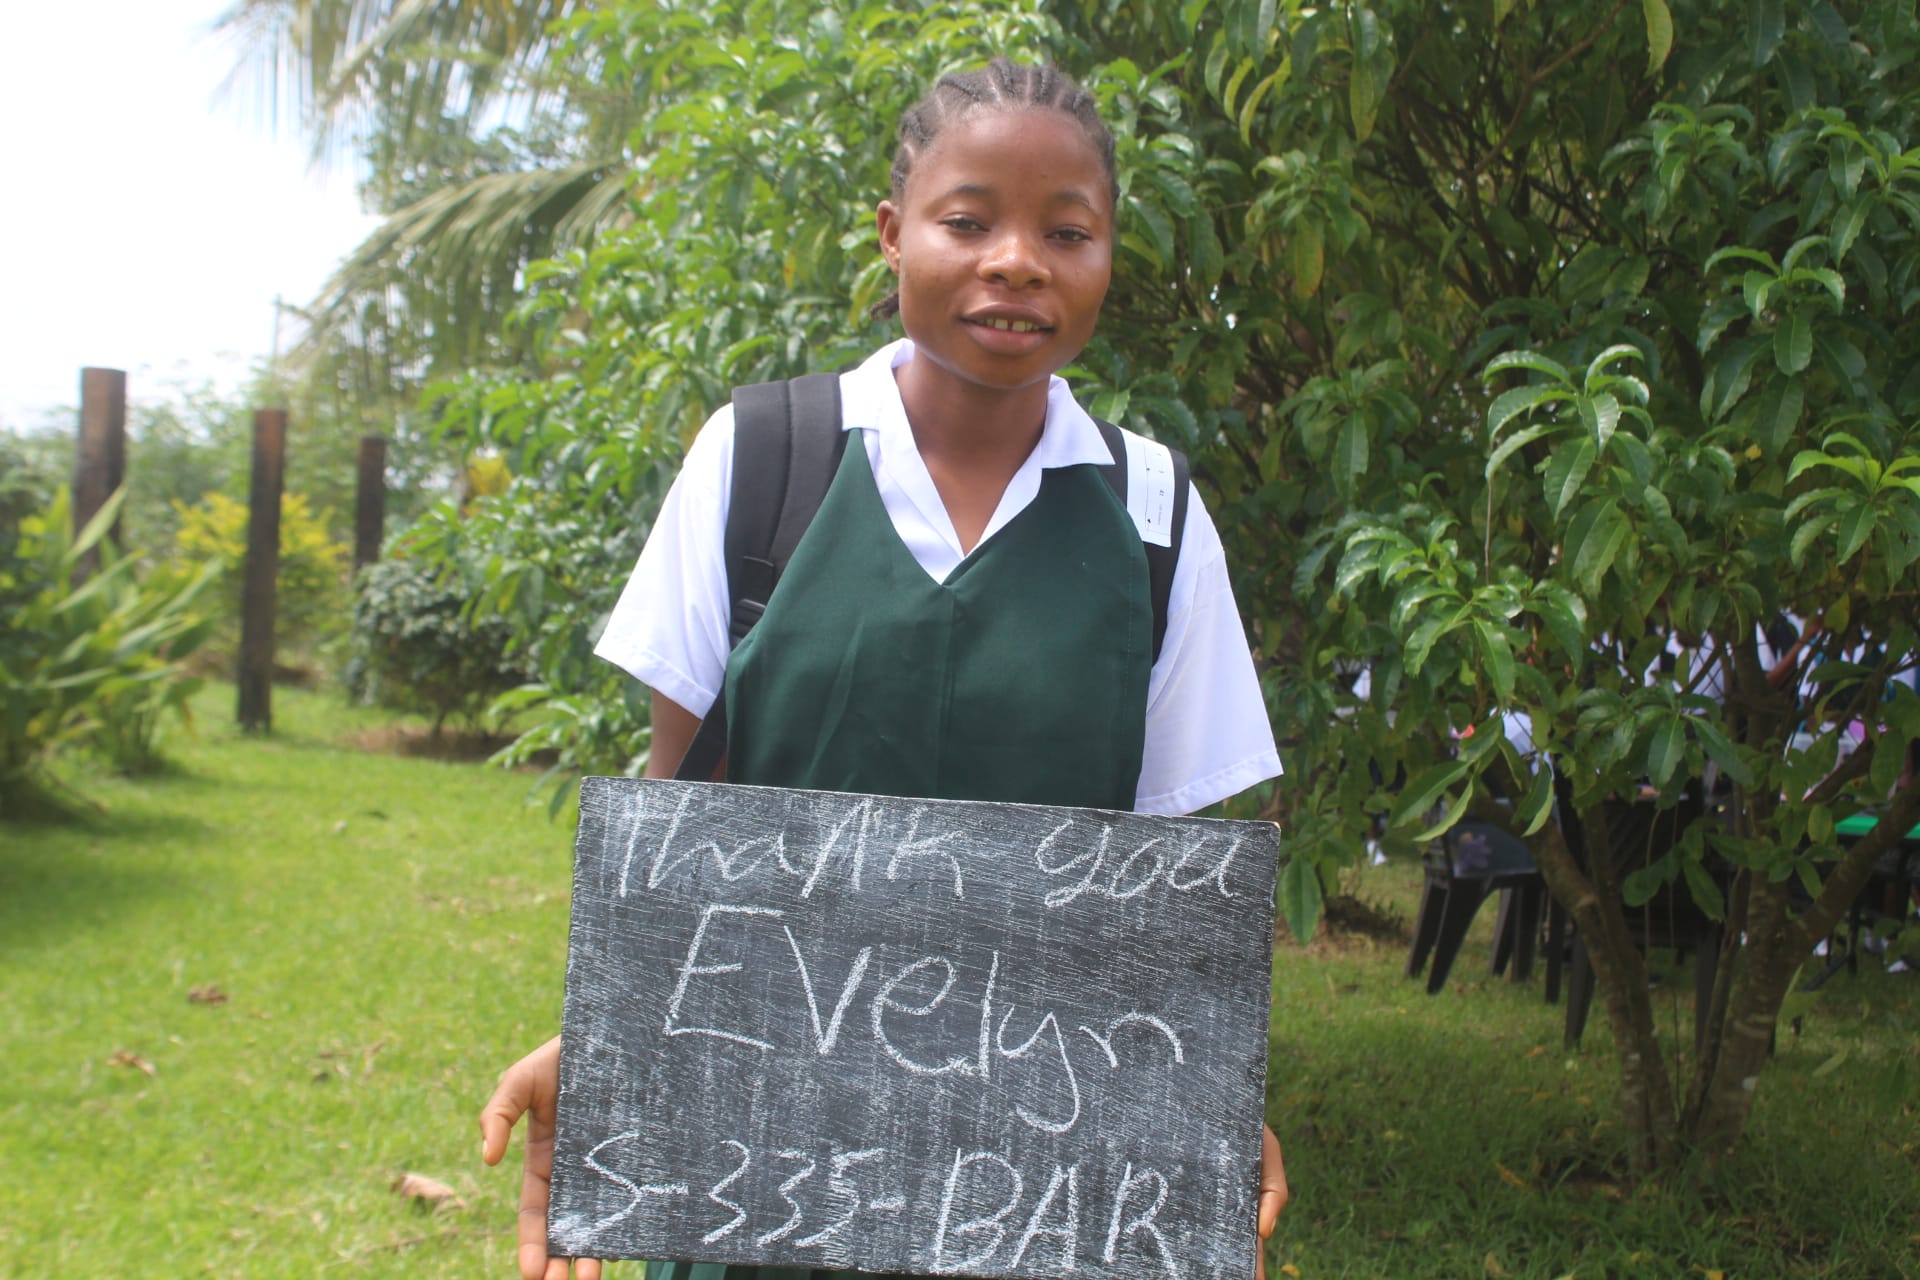 Thank you
Evelyn
S-335-BAR